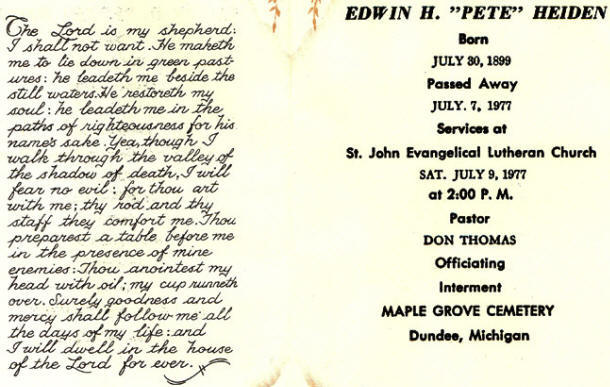 The Lord is my shepherd:
I shall not want. He maketh
me to lie down in green past-
ures: he leadeth me beside the
still waters. He restoreth my
soul: he leadeth me in the
paths of righteousness for his
name's sake. Yea, though I
walk through the valley of
the shadow of death, I will
fear no evil: for thou art
with me; thy rod and thy
staff they comfort me. Thou
preparest a table before me
in the presence of mine
enemies: Thou anointest my
head with oil; my cup runneth
over. Surely goodness and
mercy shall follow me all
the days of my life: and
I will dwell in the house
of the Lord for ever.
EDWIN H. "PETE" HEIDEN
Born
JULY 30, 1899
Passed Away
JULY. 7, 1977
Services at
St. John Evangelical Lutheran Church
SAT. JULY 9, 1977
at 2:00 P. M.
Pastor
DON THOMAS
Officiating
Interment
MAPLE GROVE CEMETERY
Dundee, Michigan